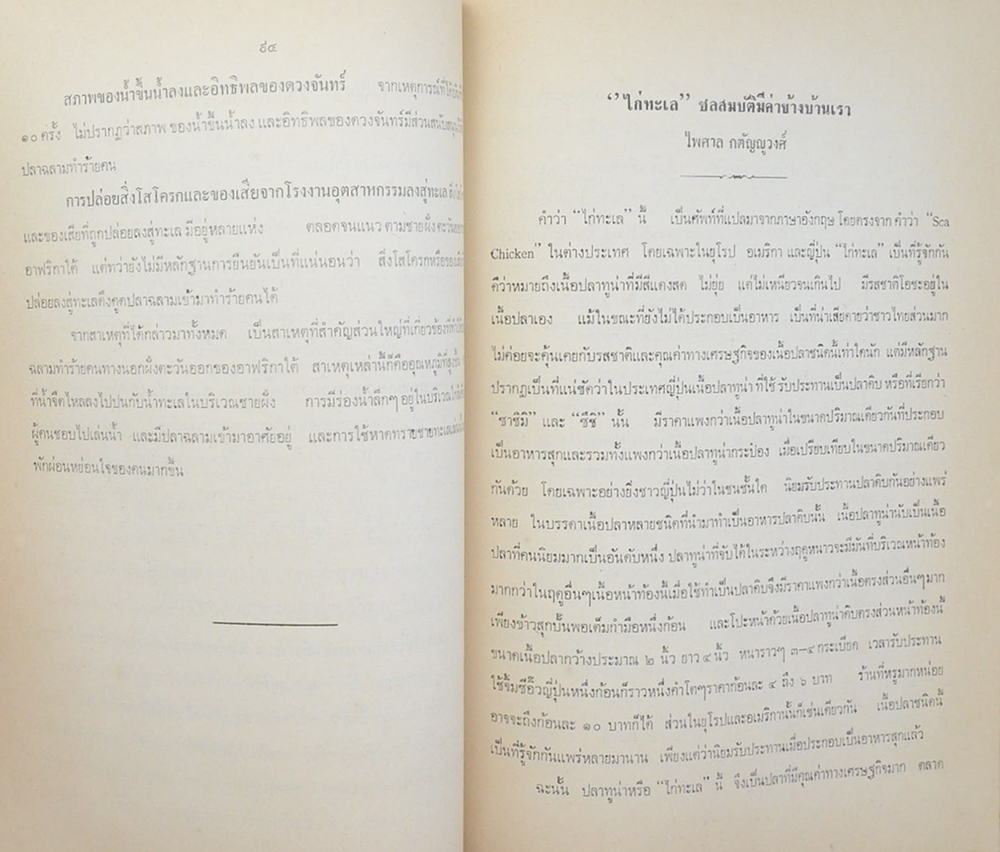 ๙๔
สภาพของน้ำขึ้นน้ำลงและอิทธิพลของดวงจันทร์ จากเหตุการณ์ที่
๑๐ ครั้ง ไม่ปรากฏว่าสภาพ ของน้ำขึ้นน้ำลง และอิทธิพลของดวงจันทร์มีส่วนสนับสนุน
ปลาฉลามทำร้ายคน
การปล่อยสิ่งโสโครกและของเสียจากโรงงานอุตสาหกรรมลงสู่ทะเล
และของเสียที่ถูกปล่อยลงสู่ทะเล มีอยู่หลายแห่ง ตลอดจนแนว ตามชายฝั่ง
อาฟริกาใต้ แต่ทว่ายังไม่มีหลักฐานการยืนยันเป็นที่แน่นอนว่า สิ่งโสโครกหรือของ
ปล่อยลงสู่ทะเลดึงดูดปลาฉลามเข้ามาทำร้ายคนได้
จากสาเหตุที่ได้กล่าวมาทั้งหมด เป็นสาเหตุที่สำคัญส่วนใหญ่ที่เกี่ยวข้อง
ฉลามทำร้ายคนทางนอกฝั่งตะวันออกของอาฟริกาใต้ สาเหตุเหล่านี้ก็คืออุณหภูมิที่สูงขึ้น
ที่น้ำจืดไหลลงไปปนกับน้ำทะเลในบริเวณชายฝั่ง การมีร่องน้ำลึกๆ อยู่ในบริเวณ
ผู้คนชอบไปเล่นน้ำ และมีปลาฉลามเข้ามาอาศัยอยู่ และการใช้หาดทรายชายทะเล
พักผ่อนหย่อนใจของคนมากขึ้น
“ไก่ทะเล” ชลสมบัติมีค่าข้างบ้านเรา
ไพศาล กตัญญูวงศ์
คำว่า “ไก่ทะเล” นี้ เป็นศัพท์ที่แปลมาจากภาษาอังกฤษ โดยตรงจาก คำว่า “Sea
Chicken” ในต่างประเทศ โดยเฉพาะในยุโรป อเมริกา และญี่ปุ่น “ไก่ทะเล” เป็นที่รู้จักกัน
ดีว่าหมายถึงเนื้อปลาทูน่าที่มีสีแดงสด ไม่ยุ่ย แต่ไม่เหนียวจนเกินไป มีรสชาติโอชะอยู่ใน
เนื้อปลาเอง แม้ในขณะที่ยังไม่ได้ประกอบเป็นอาหาร เป็นที่น่าเสียดายว่าชาวไทยส่วนมาก
ไม่ค่อยจะคุ้นเคยกับรสชาติและคุณค่าทางเศรษฐกิจของเนื้อปลาชนิดนี้เท่าใดนัก แต่มีหลักฐาน
ปรากฏเป็นที่แน่ชัดว่าในประเทศญี่ปุ่นเนื้อปลาทูน่า ที่ใช้ รับประทานเป็นปลาดิบ หรือที่เรียกว่า
“ซาซิมิ” และ “ซึชิ” นั้น มีราคาแพงกว่าเนื้อปลาทูน่าในขนาดปริมาณเดียวกันที่ประกอบ
เป็นอาหารสุกและรวมทั้งแพงกว่าเนื้อปลาทูน่ากระป๋อง เมื่อเปรียบเทียบในขนาดปริมาณเดียว
กันด้วย โดยเฉพาะอย่างยิ่งชาวญี่ปุ่นไม่ว่าในชนชั้นใด นิยมรับประทานปลาดิบกันอย่างแพร่
หลาย ในบรรดาเนื้อปลาหลายชนิดที่นำมาทำเป็นอาหารปลาดิบนั้น เนื้อปลาทูน่านับเป็นเนื้อ
ปลาที่คนนิยมมากเป็นอันดับหนึ่ง ปลาทูน่าที่จับได้ในระหว่างฤดูหนาวจะมีมันที่บริเวณหน้าท้อง
มากกว่าในฤดูอื่นๆเนื้อหน้าท้องนี้เมื่อใช้ทำเป็นปลาดิบจึงมีราคาแพงกว่าเนื้อตรงส่วนอื่นๆมาก
เพียงข้าวสุกปั้นพอเต็มกำมือหนึ่งก้อน และโปะหน้าด้วยเนื้อปลาทูน่าดิบตรงส่วนหน้าท้องนี้
ขนาดเนื้อปลากว้างประมาณ ๒ นิ้ว ยาว ๔ นิ้ว หนาราวๆ ๓-๔ กระเบียด เวลารับประทาน
ใช้จิ้มซีอิ๊วญี่ปุ่นหนึ่งก้อนก็ราวหนึ่งคำโตๆราคาก้อนละ ๔ ถึง ๖ บาท ร้านที่หรูมากหน่อย
อาจจะถึงก้อนละ ๑๐ บาทก็ได้ ส่วนในยุโรปและอเมริกานั้นก็เช่นเดียวกัน เนื้อปลาชนิดนี้
เป็นที่รู้จักกันแพร่หลายมานาน เพียงแต่ว่านิยมรับประทานเมื่อประกอบเป็นอาหารสุกแล้ว
ฉะนั้น ปลาทูน่าหรือ “ไก่ทะเล” นี้ จึงเป็นปลาที่มีคุณค่าทางเศรษฐกิจมาก ตลาด